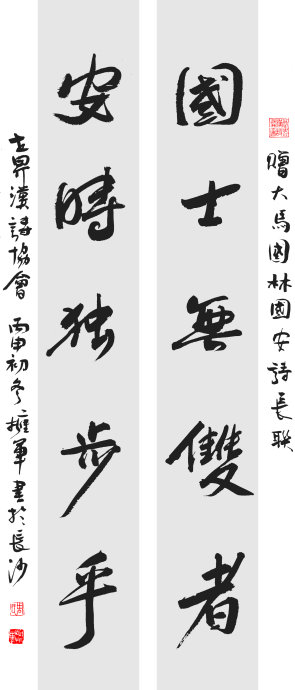 贈大馬國林國安詩長联
國士無雙者
安時独步乎
世界漢詩協會 丙申初冬擁軍書於長沙